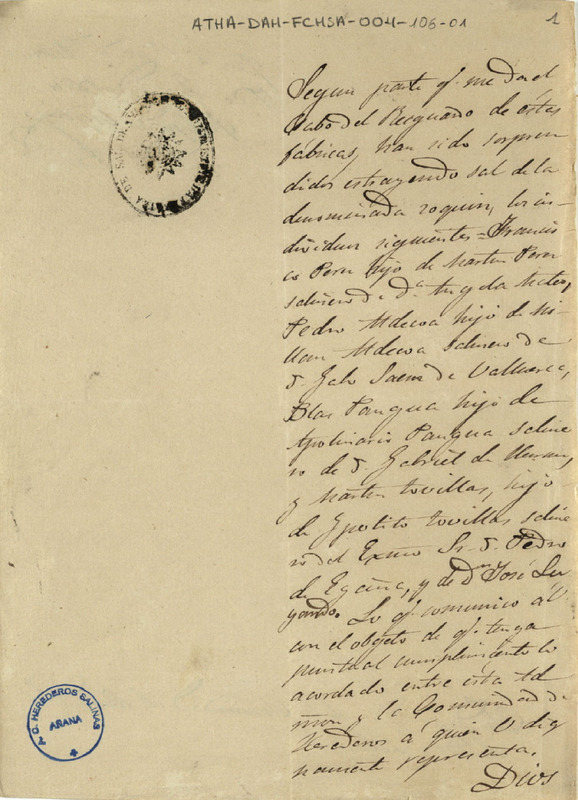 ATHA-DAH-FCHSA-004-106-01
1
Segun parte qᵉ me da el
Cabo del Resguardo de estas
fabricas, han sido sorpren
didos estrayendo sal de la
denominada roquin, los in-
dividuos siguientes = Francis
co Perea hijo de Martin Perea
salinero de Dª Angela Mateo,
Pedro hijo de Mi-
llan salinero de
D. Saem de Valluerca,
Blas Pangua hijo de
Apolinario Pangua saline
ro de D. Gabriel de
y Martin tovillas, hijo
de Ypolito tovillas saline
ro del Exmo Sr. D. Pedro
de Egaña, y de Dⁿ José
Lo qᵉ comunico a V.
con el objeto de qᵉ tenga
puntual cumplimiento lo
acordado entre esta Ad
mon y la Comunidad de
Herederos a quien V. dig
namente representa.
Dios
A. C. HEREDEROS SALINAS
AÑANA
4